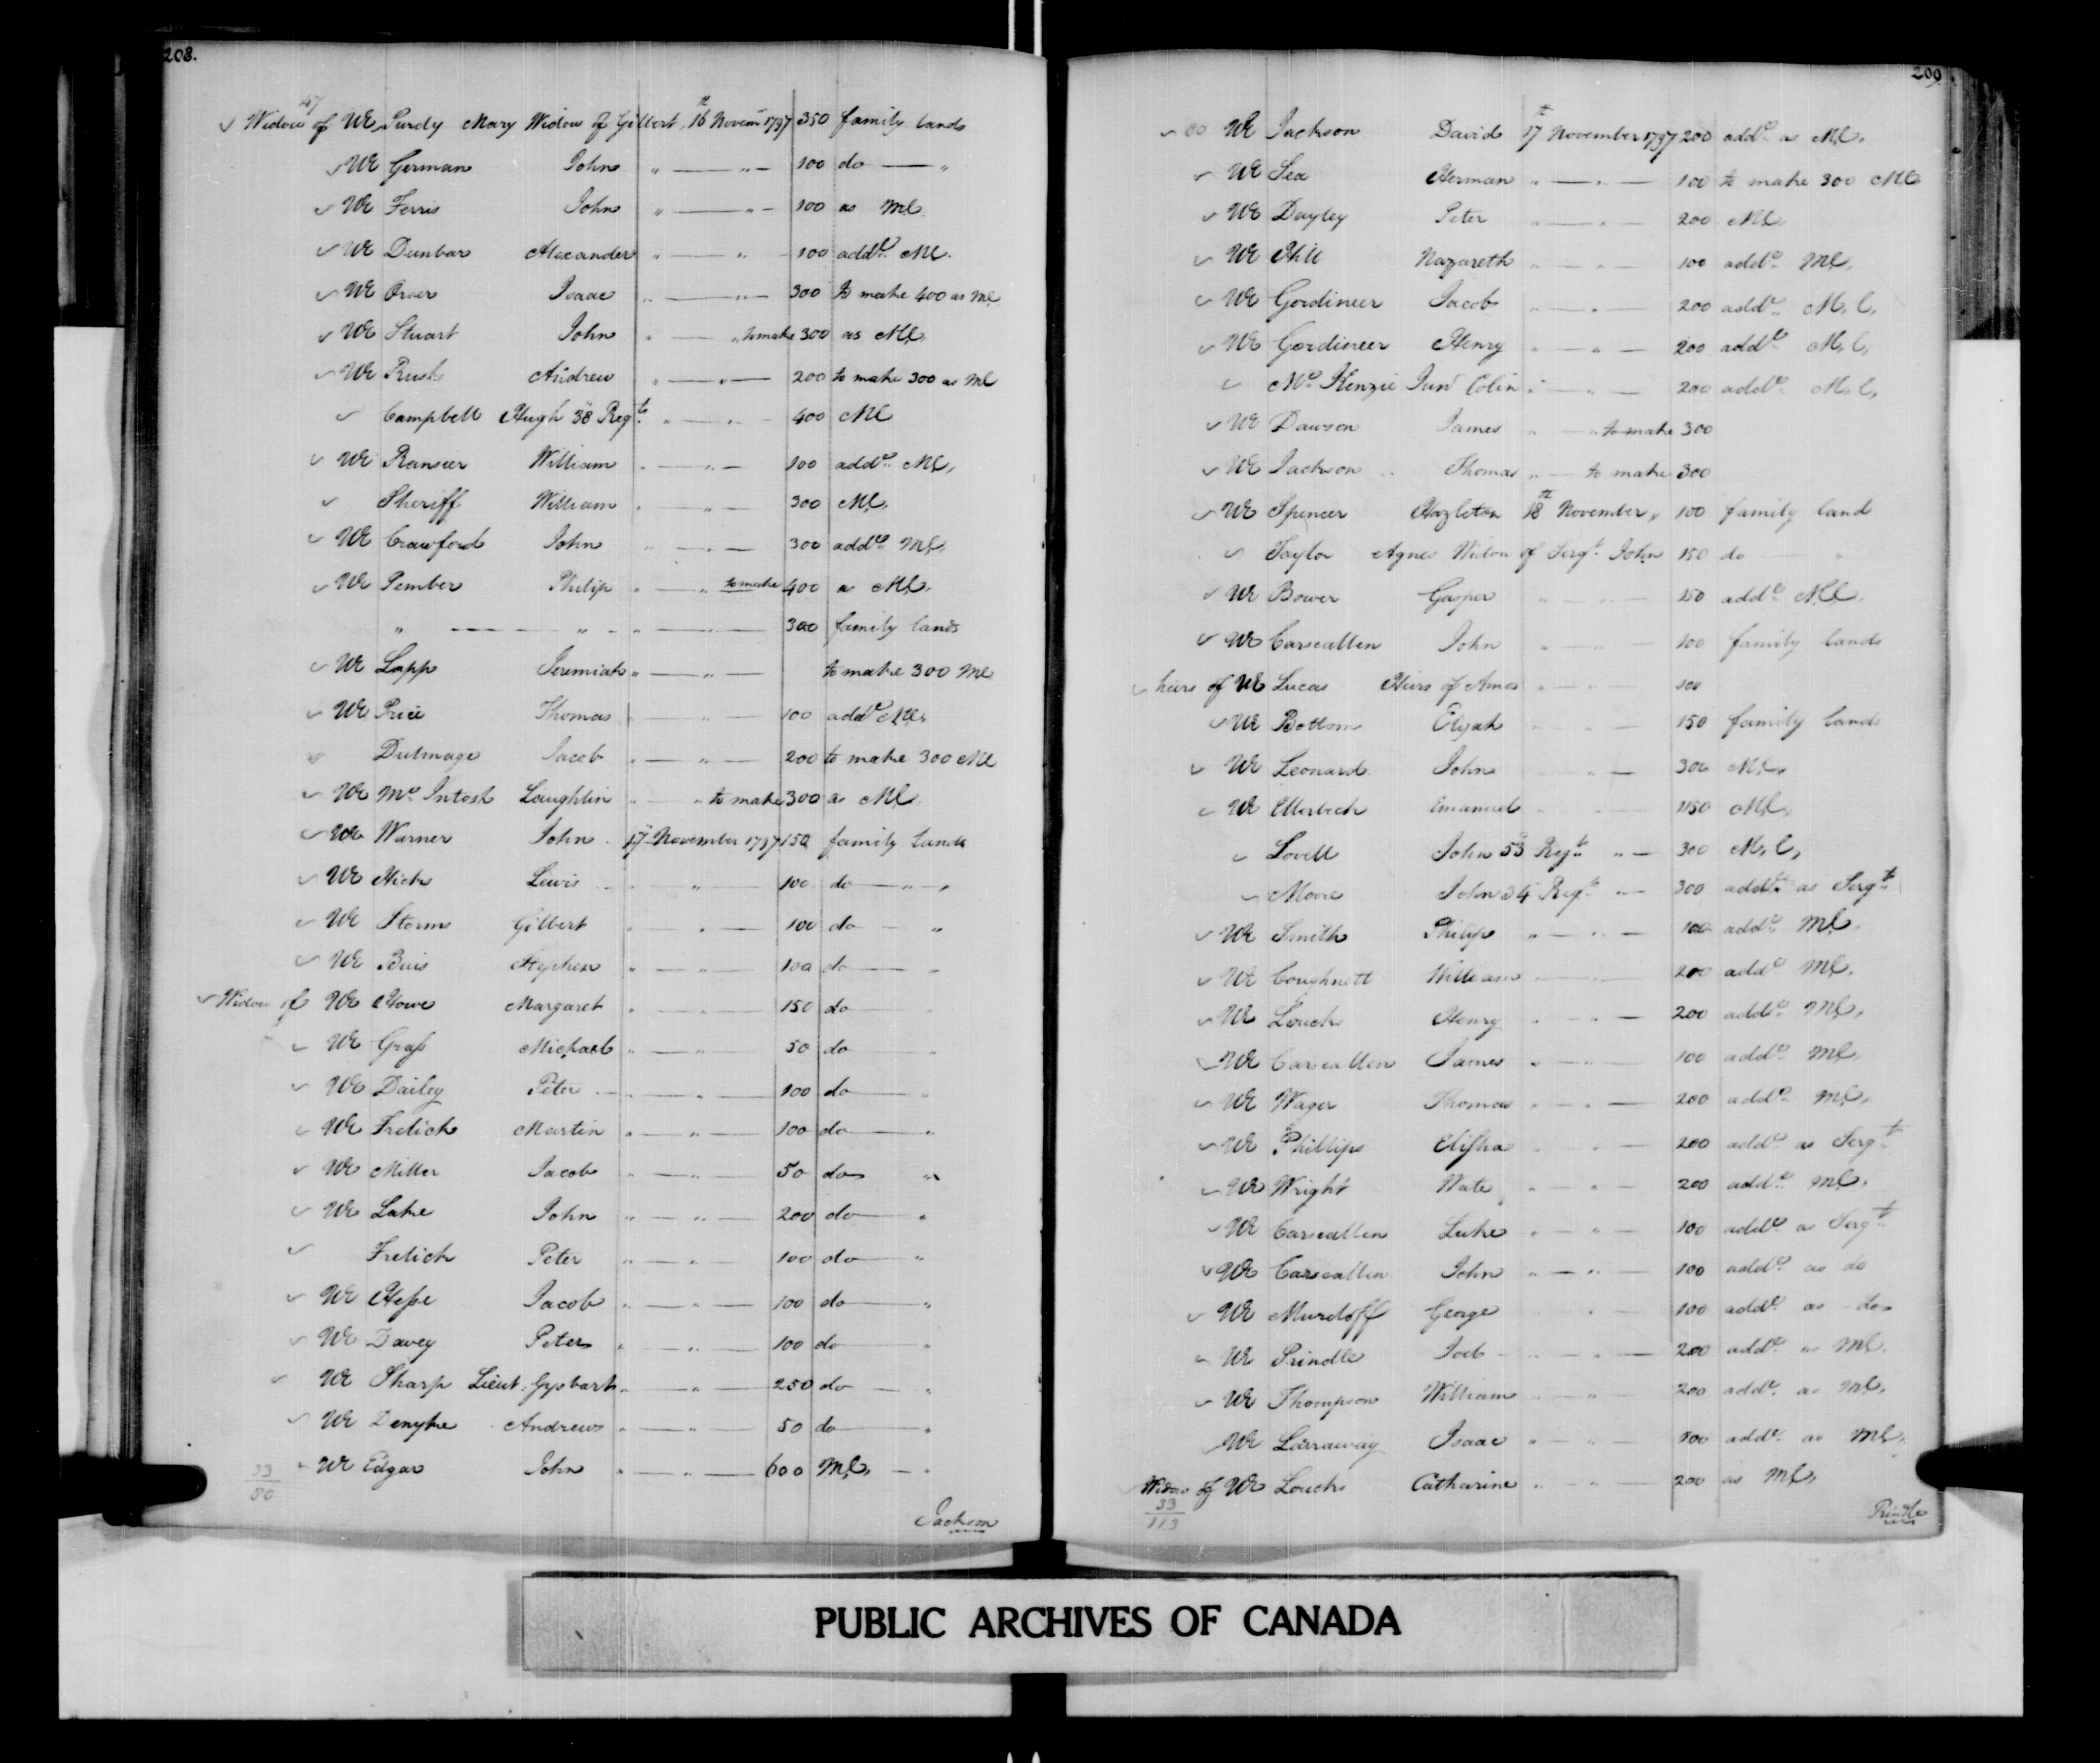 208.
47
Widow of UE Purdy Mary Widow of Gilbert 16th Novem 1797 350 family lands
UE German John " " 100 do "
UE Ferris John " " 100 as ML.
UE Dunbar Alexander " " 100 addl. ML.
UE Orser Isaac " " 300 to make 400 as ML
UE Stuart John " " to make 300 as ML,
UE Rush Andrew " " 200 to make 300 as ML
Campbell Hugh 38 Regt. " " 400 ML
UE Ransier William " " 100 addl. ML,
Sheriff William " " 300 ML,
UE Crawford John " " 300 addl. ML,
UE Pember Philip " " to make 400 as ML,
" " " " 300 family lands
UE Lapp Jeremiah " " to make 300 ML
UE Price Thomas " 100 addl ML,
Dulmage Jacob " " 200 to make 300 ML
UE Mc Intosh Laughlin " " to make 300 as ML,
UE Warner John 17 November 1797 150 family lands
UE Hicks Lewis " " 100 do "
UE Storms Gilbert " " 100 do "
UE Buis Stephen " " 100 do "
Widow of UE Howe Margaret " " 150 do
UE Grass Michael " " 50 do "
UE Dailey Peter " " 100 do "
UE Frelick Martin " " 100 do "
UE Miller Jacob " " 50 do "
UE Lake John " " 200 do "
Frelick Peter " " 100 do "
UE Hesse Jacob " " 100 do "
UE Davey Peter " " 100 do "
UE Sharp Lieut: Gysbart " " 250 do "
UE Denyke Andrew " " 50 do "
UE Edgar John " " 600 ML, "
33
80
Jackson
209.
80 UE Jackson David 17th November 1797 200 addl as ML,
UE Sea Herman " " 100 to make 300 ML
UE Dayley Peter " " 200 ML,
UE Hill Nazareth " " 100 addl. ML,
UE Gordineer Jacob " " 200 addl. M,L,
UE Gordineer Henry " " 200 addl. M,L,
Mc Kenzie Junr Colin " " 200 addl. M,L,
UE Dawson James " " to make 300
UE Jackson Thomas " to make 300
UE Spencer Hazleton 18th November " 100 family land
Taylor Agnes Widow of Sergt. John 150 do "
UE Bower Gasper " " 150 addl. ML,
UE Carscallen John " " 100 family lands
heirs of UE Lucas Heirs of Amos " " 100
UE Bottom Elijah " " 150 family lands
UE Leonard John " 300 ML,
UE Ellerbeck Emanuel " 1150 ML,
Lovell John 53 Regt. " 300 M,L,
Moore John 34 Regt. " 300 addl. as Sergt.
UE Smith Philip " " 100 addl. ML,
UE Coughnett William " 200 addl ML,
UE Louck Henry " " 200 addl. ML,
UE Carscallen James " " 100 addl. ML,
UE Wager Thomas " " 200 addl. ML,
UE Phillips Elisha " " 200 addl as Sergt.
UE Wright Wate " " 200 addl. ML,
UE Carscallen Luke " " 100 addl as Sergt.
UE Carscallen John " " 100 addl. as do
UE Murdoff George " 100 addl. as do
UE Prindle Joel " " 200 addl. as ML,
UE Thompson William " " 200 addl. as ML,
UE Larraway Isaac " " 100 addl. as ML,
Widow of UE Loucks Catharine " " 200 as ML,
33
113
Prindle
PUBLIC ARCHIVES OF CANADA